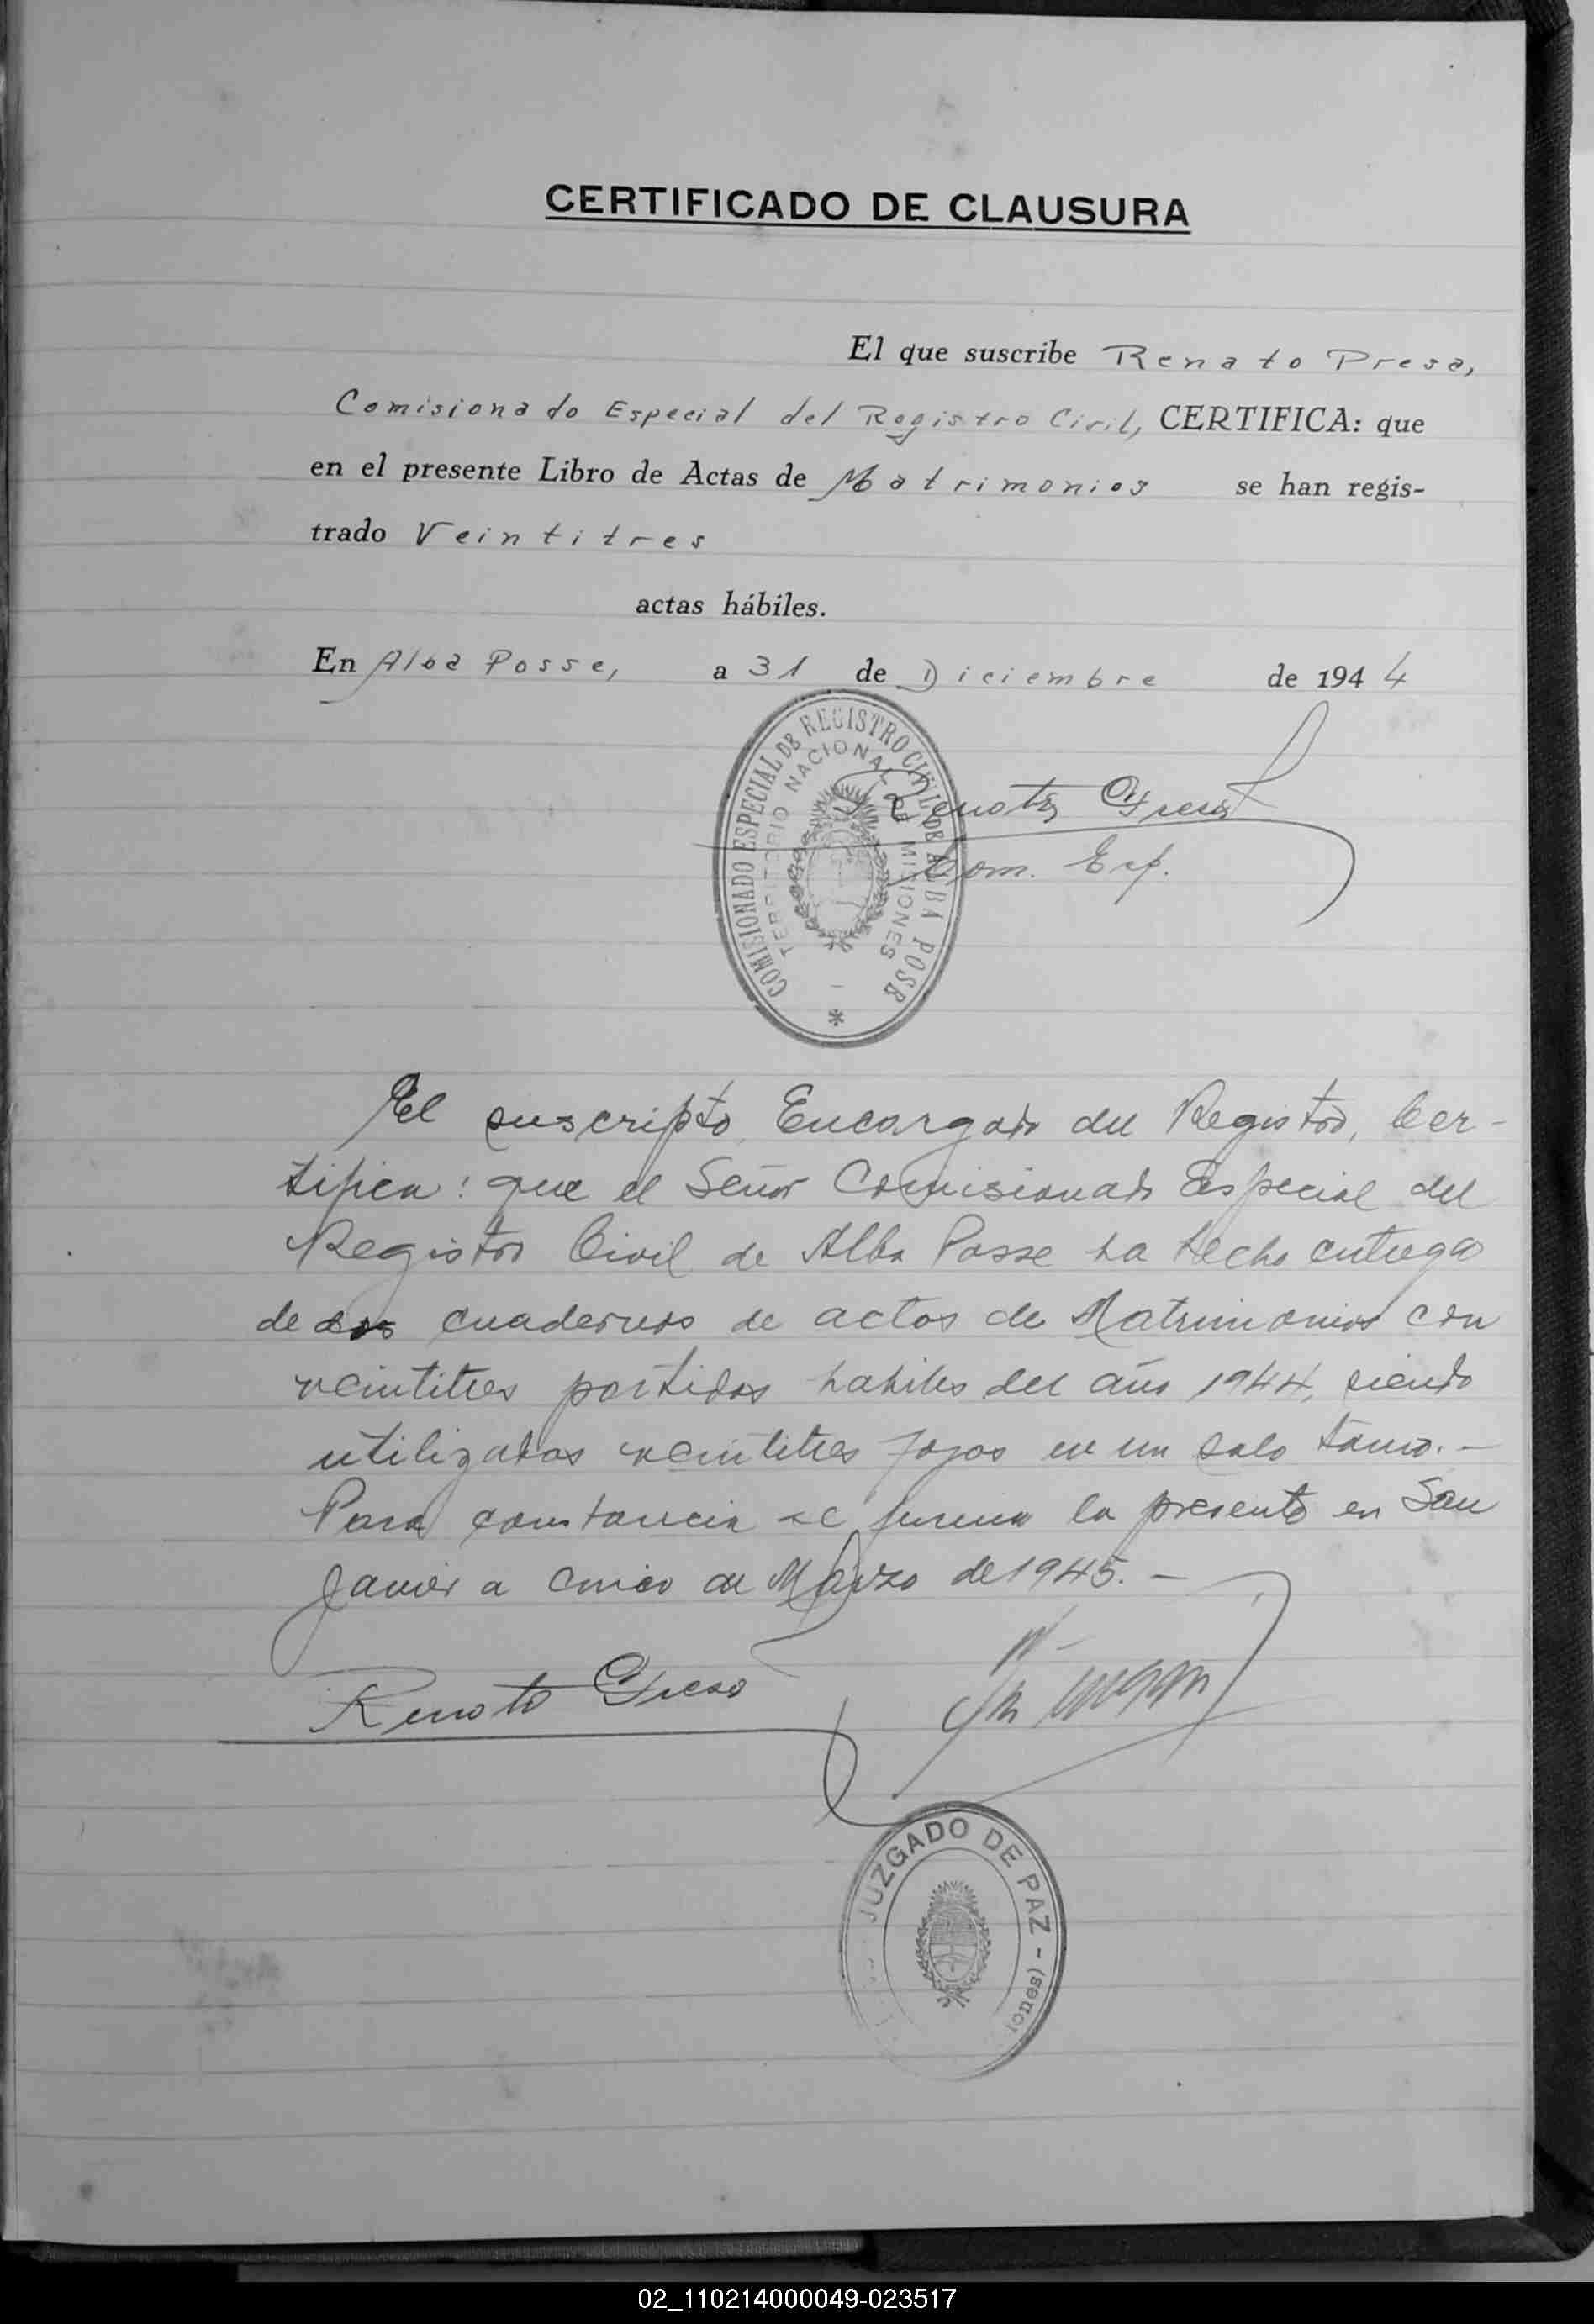 CERTIFICADO DE CLAUSURA
El que suscribe Renato Presa,
Comisionado Especial del Registro Civil, CERTIFICA: que
en el presente Libro de Actas de Matrimonios se han regis-
trado Veintitres
actas hábiles.
En Alba Posse, a 31 de Diciembre de 1944
COMISIONADO ESPECIAL DE REGISTRO CIVIL DE ALBA POSE
TERRITORIO NACIONAL DE MISIONES
Renato Presa
Com. Esp.
El suscripto, Encargado del Registro, Cer-
tifica: que el Señor Comisionado Especial del
Registro Civil de Alba Posse ha hecho entrega
de dos cuadernos de actas de Matrimonios con
veintitres partidas habiles del año 1944, siendo
utilizadas veintitres fojas en un solo tomo.-
Para constancia se firma la presente en San
Javier a cinco de Marzo de 1945.-
Renato Presa
JUZGADO DE PAZ -
iones)
02_110214000049-023517